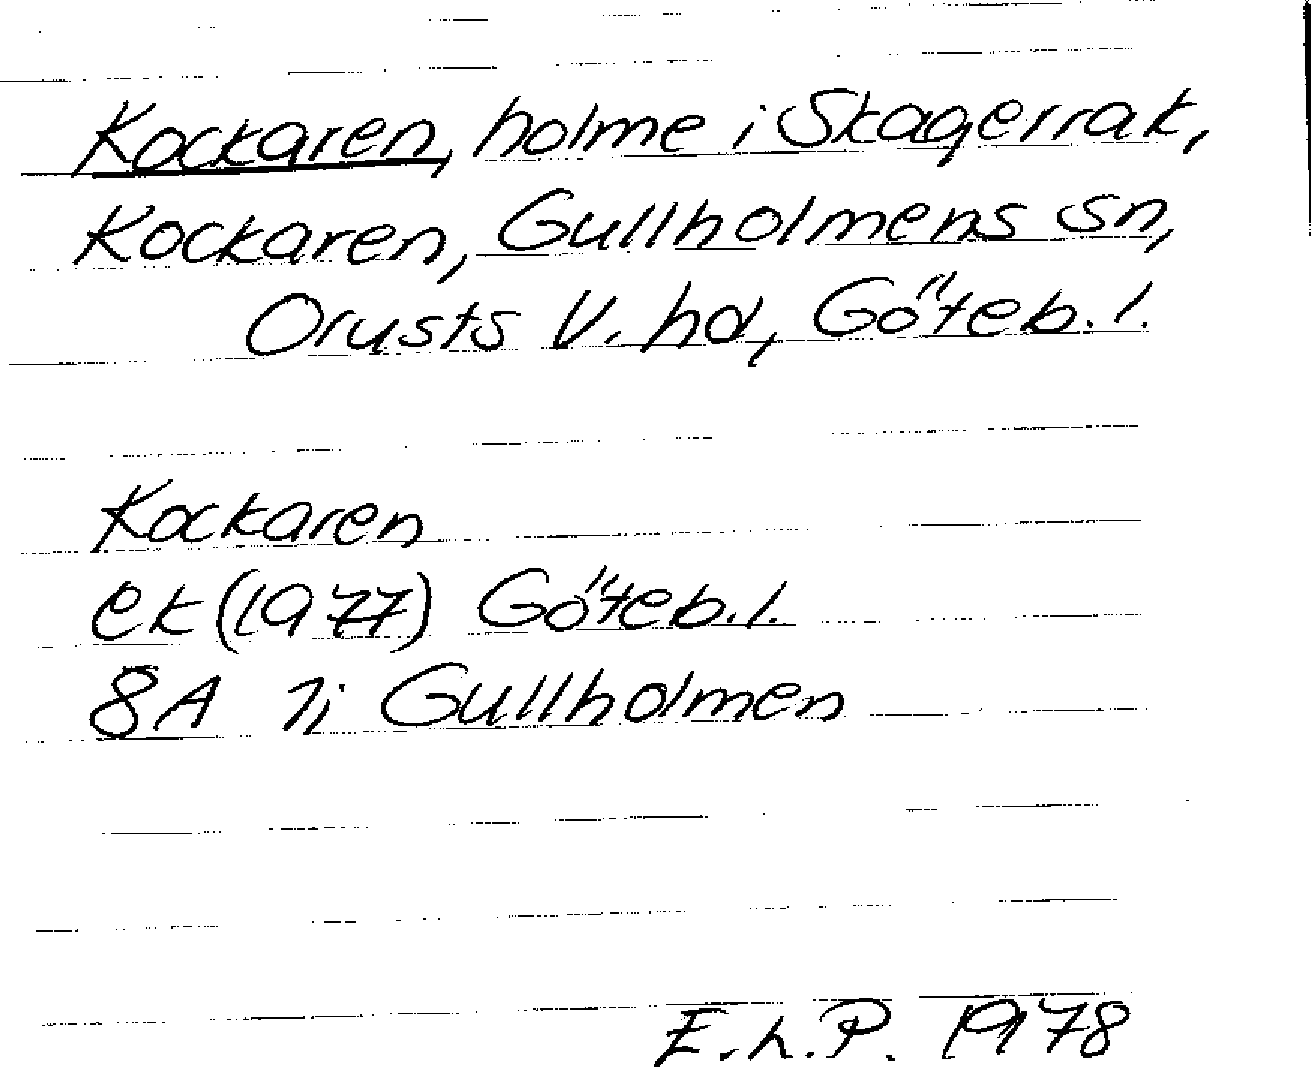 Kockaren, holme i Skagerrak,
Kockaren, Gullholmens sn,
Orusts V. hd, Göteb. l.
Kockaren
ek (1977) Göteb. l.
8A 7i Gullholmen
E.h.P. 1978